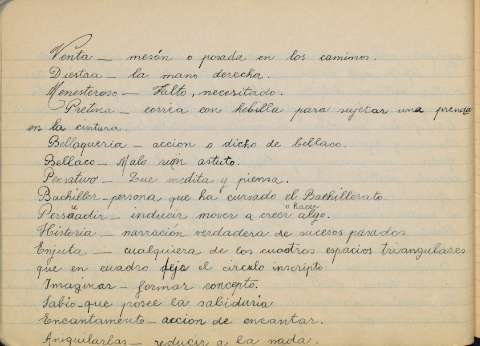 Venta — mesón o posada en los caminos.
Diestra — la mano derecha.
Menesteroso — Falto, necesitado.
Pretina — correa con hebilla para sujetar una prenda
en la cintura.
Bellaqueria — accion o dicho de bellaco.
Bellaco — Malo ruin astuto.
Pensativo — Que medita y piensa.
Bachiller — persona que ha cursado el Bachillerato
Persuadir — inducir mover a creer o hacer algo.
Historia — narración verdadera de sucesos pasados
Enjuta — cualquiera de los cuatros espacios triangulares
que en cuadro deja el circulo inscripto.
Imaginar — formar concepto.
Sabio — que posee la sabiduria
Encantamento — accion de encantar.
Aniquilarlas — reducir a la nada.